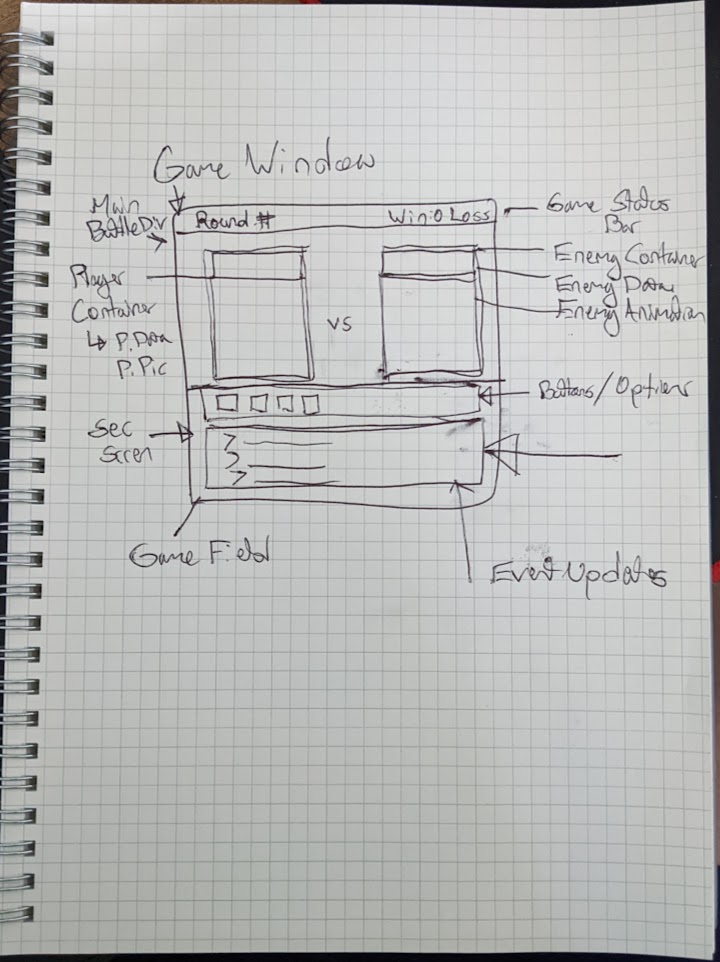 Game Window
Main
BattleDiv
Round #
Win:0 Loss
Game Status
Bar
Player
Container
↳ P. Data
P. Pic
VS
Enemy Container
Enemy Data
Enemy Animation
Buttons/Options
Sec
Scren
>
>
>
Game Field
Event Updates